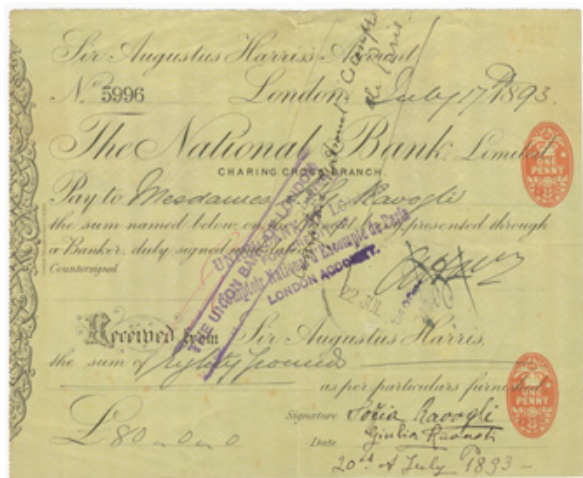 Sir Augustus Harris's Account
No. 5996 London July 17th 1893.
The National Bank Limited
CHARING CROSS BRANCH.
Pay to Mesdames Ravogli
the sum named below on presented through
a Banker, duly signed
Countersigned
ONE PENNY
THE UNION BANK OF LONDON
Comptoir National d'Escompte de Paris
LONDON AGGENCY.
22 JUL
Received from Sir Augustus Harris.
the sum of Eighty pounds
as per particulars furnished
ONE PENNY
£80-0-0
Signature Sofia Ravogli
Giulia Ravogli
Date 20th of July 1893-